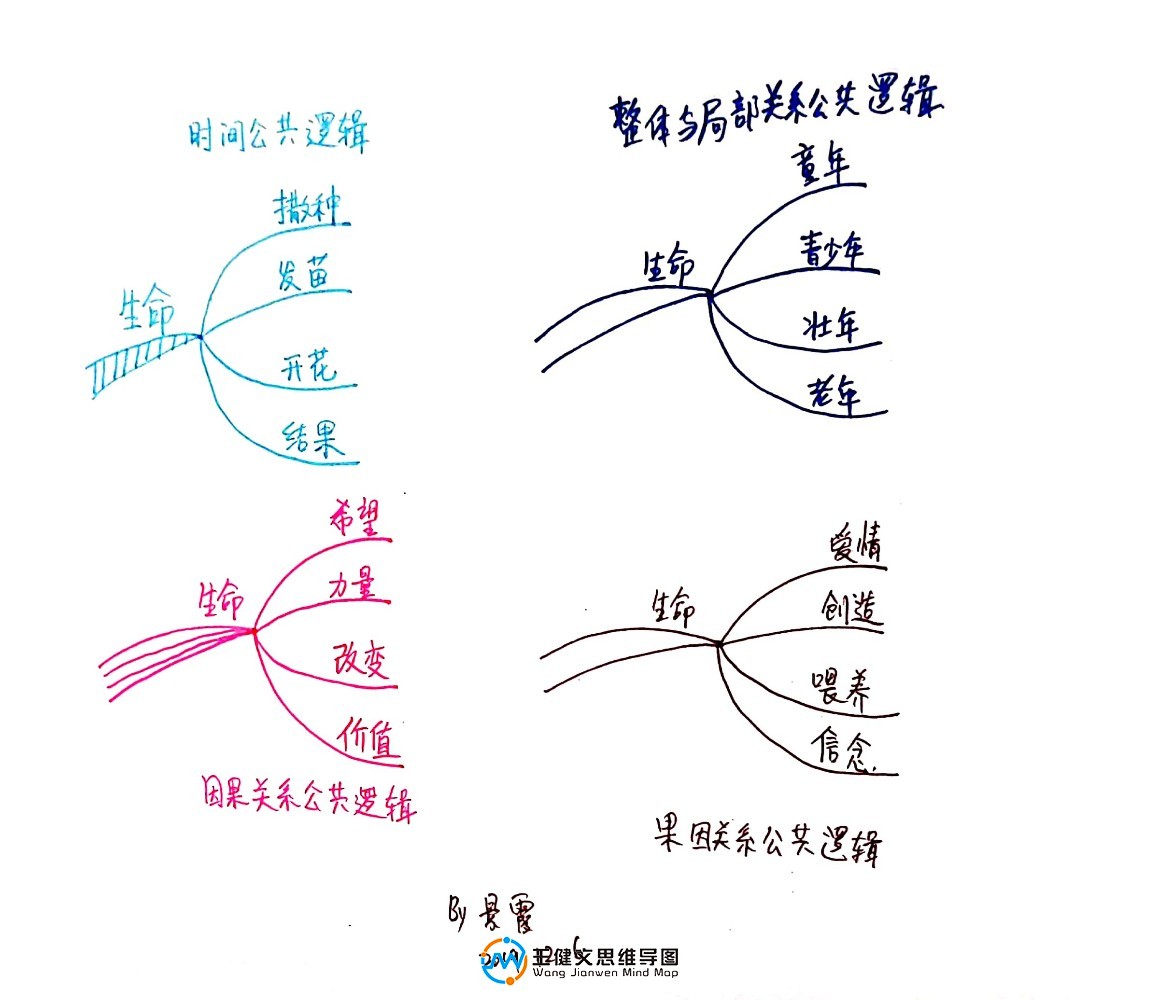 时间公共逻辑
撒种
发苗
生命
开花
结果
整体与局部关系公共逻辑
童年
青少年
生命
壮年
老年
希望
力量
生命
改变
价值
因果关系公共逻辑
爱情
创造
生命
喂养
信念.
果因关系公共逻辑
By 景霞
王健文思维导图
Wang Jianwen Mind Map